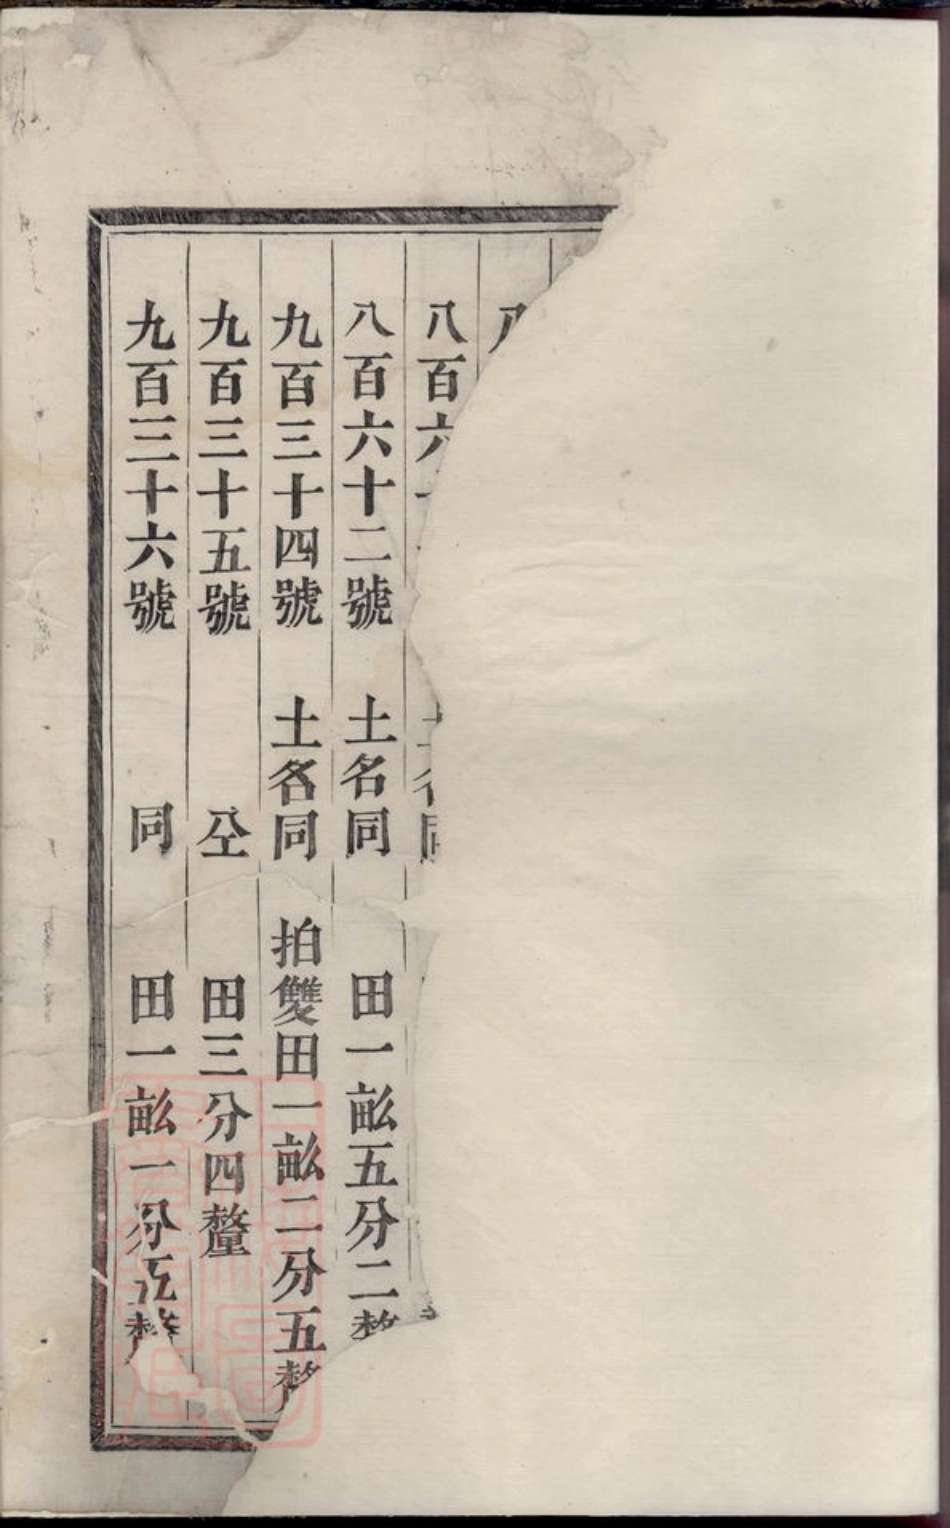 八
八百六
八百六十二號 土名同 田一畝五分二釐
九百三十四號 土名同 拍雙田一畝二分五釐
九百三十五號 仝 田三分四釐
九百三十六號 同 田一畝一分五釐